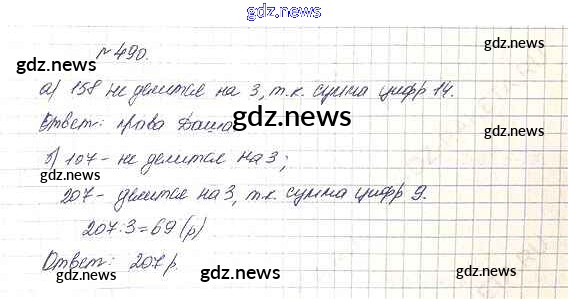 gdz.news
№ 490.
gdz.news
gdz.news
а) 158 не делится на 3, т.к. сумма цифр 14.
Ответ: права Даша
gdz.news
б) 107 - не делится на 3;
gdz.news
gdz.news
207 - делится на 3, т.к. сумма цифр 9.
207:3=69 (р)
Ответ: 207 р.
gdz.news
gdz.news